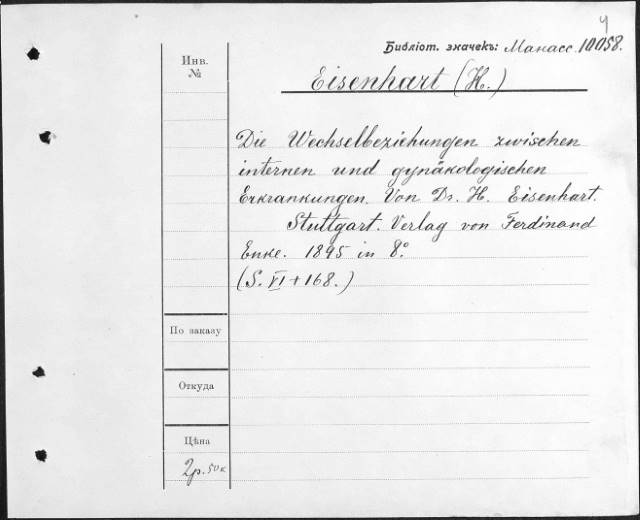 4
Библіот. значекъ: Манасс. 10058.
Инв.
№
Eisenhart (H.)
Die Wechselbeziehungen zwischen
internen und gynäkologischen
Erkrankungen. Von Dr. H. Eisenhart.
Stuttgart. Verlag von Ferdinand
Enke. 1895 in 8°.
(S. VI + 168.)
По заказу
Откуда
Цѣна
2р. 50к